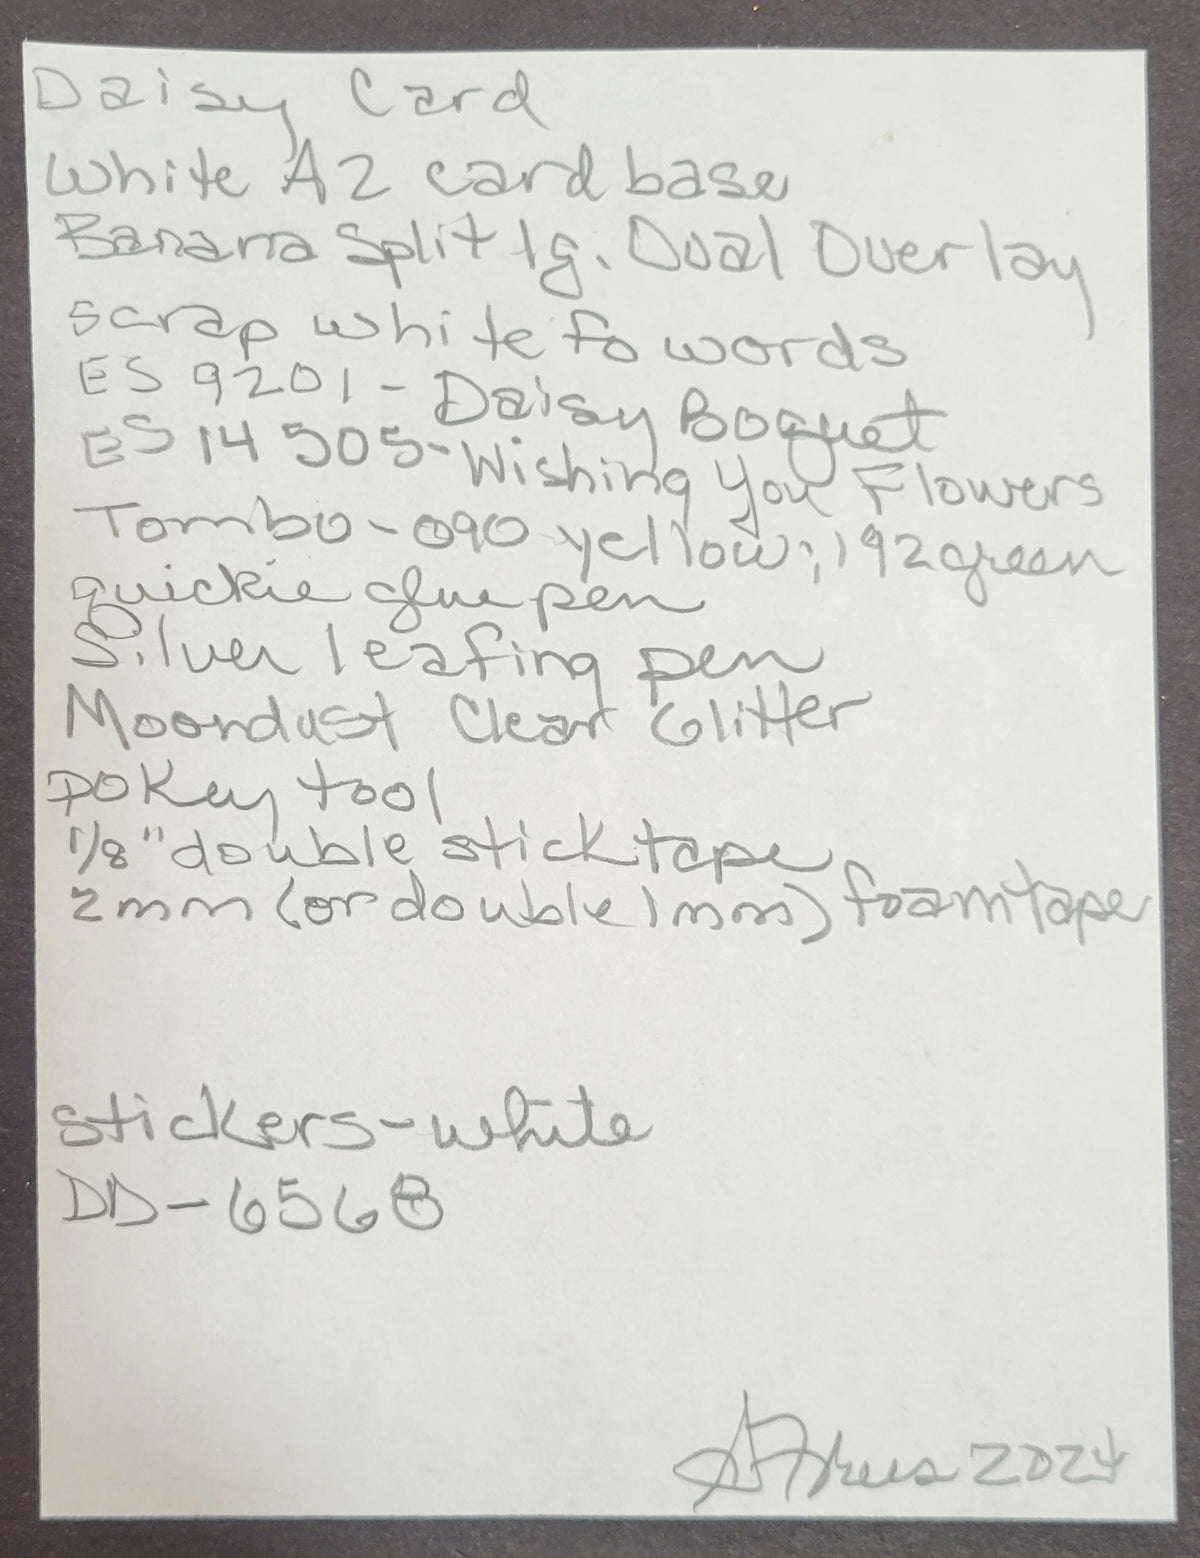 Daisy Card
White A2 card base
Banana Split lg. Dual Overlay
scrap white fo words
ES 9201 - Daisy Boquet
ES 14505 - Wishing You Flowers
Tombo - 090 yellow; 192 green
quickie glue pen
Silver leafing pen
Moondust Clear Glitter
pokey tool
1/8" double stick tape
2mm (or double 1mm) foam tape
stickers - white
DD - 6568
2024